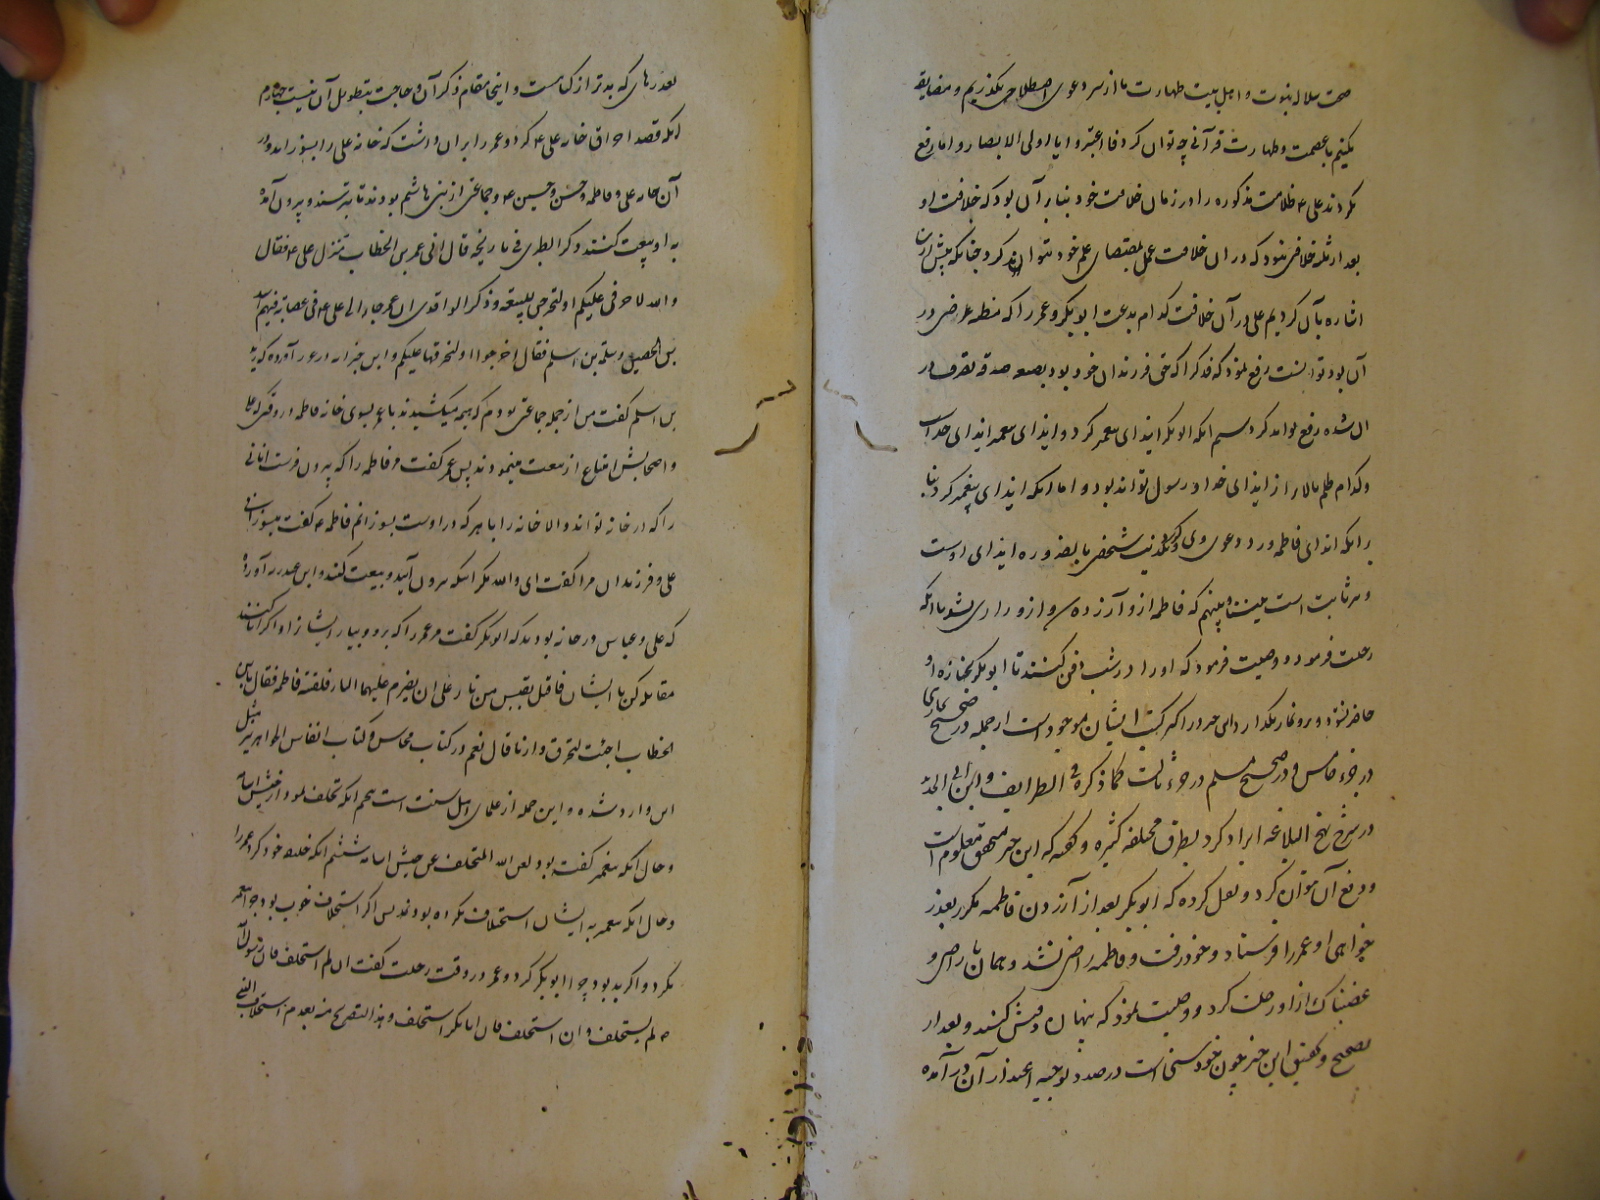 صحت سلاله نبوت و اهل بیت طهارت ما از سر دعوی اصطلاحی بگذریم و مضایقه
نکنیم با عصمت و طهارت قرآنی چه توان کرد فاعتبروا یا اولی الابصار و اما رفع
نکردند علی ع ظلامت مذکوره را در زمان خلافت خود بنابر آن بود که خلافت او
بعد از ثلثه خلافتی نبود که در ان خلافت عمل بمقتضای علم خود تواند کرد چنانکه پیش ازین
اشاره بآن کردیم علی در آن خلافت کدام بدعت ابوبکر و عمر را که مظنه غرضی در
آن بود توانست رفع نمود که فدک را که حق فرزندان خود بود بصیغه صدقه تصرف در
ان شده رفع تواند کرد سیم انکه ابوبکر ایذای پیغمبر کرد و ایذای پیغمبر ایذای خداست
و کدام ظلم بالاتر از ایذای خدا و رسول تواند بود و اما انکه ایذای پیغمبر کرد بنا
برانکه ایذای فاطمه در رد دعوی وی کرد و تکذیب شخص بالضروره ایذای اوست
و نیز ثابت است بیننا و بینهم که فاطمه ازو آزرده و ازو راضی نشد تا انکه
رحلت فرمود و وصیت فرمود که او را در شب دفن کنند تا ابوبکر بجنازه او
حاضر نشود و برو نماز نگذارد این خبر در اکثر کتب ایشان موجود است از جمله در صحیح بخاری
در جزء خامس و در صحیح مسلم در جزء ثالث کما ذکره فی الطرایف و ابن ابی الحدید
در شرح نهج البلاغه ایراد کرد بطرق مختلفه کثیره و گفته که این خبر صحیح معلوم است
و دفع آن نتوان کرد و نقل کرده که ابوبکر بعد از آزردن فاطمه مکرر بعذر
خواهی او عمر را فرستاد و خود رفت و فاطمه راضی نشد و همان ناراضی و
غضبناک از او رحلت کرد و وصیت نمود که پنهان دفنش کنند و بعد از
تصحیح و تحقیق این خبر چون خود سنی است در صدد توجیه اعتذار آن در آمده
بعذرهای که بدتر از گناهست و اینجا مقام ذکر آن و حاجت بتطویل آن نیست چهارم
انکه قصد احراق خانه علی ع کرد و عمر را بران داشت که خانه علی را بسوزاند و در
آن خانه علی و فاطمه و حسن و حسین ع و جماعتی از بنی هاشم بودند تا بترسند و بیرون آمده
به او بیعت کنند ذکر الطبری فی تاریخه قال اتی عمر بن الخطاب منزل علی ع فقال
والله لاحرقن علیکم او لتخرجن للبیعه و ذکر الواقدی ان عمر جاء الی علی ع فی عصابه فیهم اسید
بن الحصین و سلمه بن اسلم فقال اخرجوا او لنحرقها علیکم و ابن خیزرانه در غرر آورده که زید
بن اسلم گفت من از جمله جماعتی بودم که هیمه میکشیدند با عمر بسوی خانه فاطمه در وقتی که علی
و اصحابش امتناع از بیعت مینمودند پس عمر گفت مر فاطمه را که بیرون فرست آنانی
را که در خانه تواند والا خانه را با هر که در اوست بسوزانم فاطمه ع گفت میسوزانی
علی و فرزندان مرا گفت ای والله مگر اینکه بیرون آیند و بیعت کنند و ابن عبد ربه آورده
که علی و عباس در خانه بودند که ابوبکر گفت مر عمر را که برو و بیار ایشان را و اگر ابا کنند
مقاتله کن با ایشان فاقبل بقبس من نار علی ان یضرم علیهما النار فلقته فاطمه فقال یا بن
الخطاب اجئت لتحرق دارنا قال نعم و در کتاب محاسن و کتاب انفاس الجواهر نیز مثل
این وارد شده و این جمله از علمای اهل سنت است پنجم انکه تخلف نمود از جیش اسامه
و حال انکه پیغمبر گفته بود لعن الله المتخلف عن جیش اسامه ششم انکه خلیفه خود کرد عمر را
و حال انکه پیغمبر به ایشان استخلاف نکرده بود پس اگر استخلاف خوب بود چرا پیغمبر
نکرد و اگر بد بود چرا ابوبکر کرد و عمر در وقت رحلت گفت ان لم استخلف فان رسول الله
ص لم یستخلف و ان استخلف فان ابابکر استخلف و هذا التصریح منه بعدم استخلاف النبی